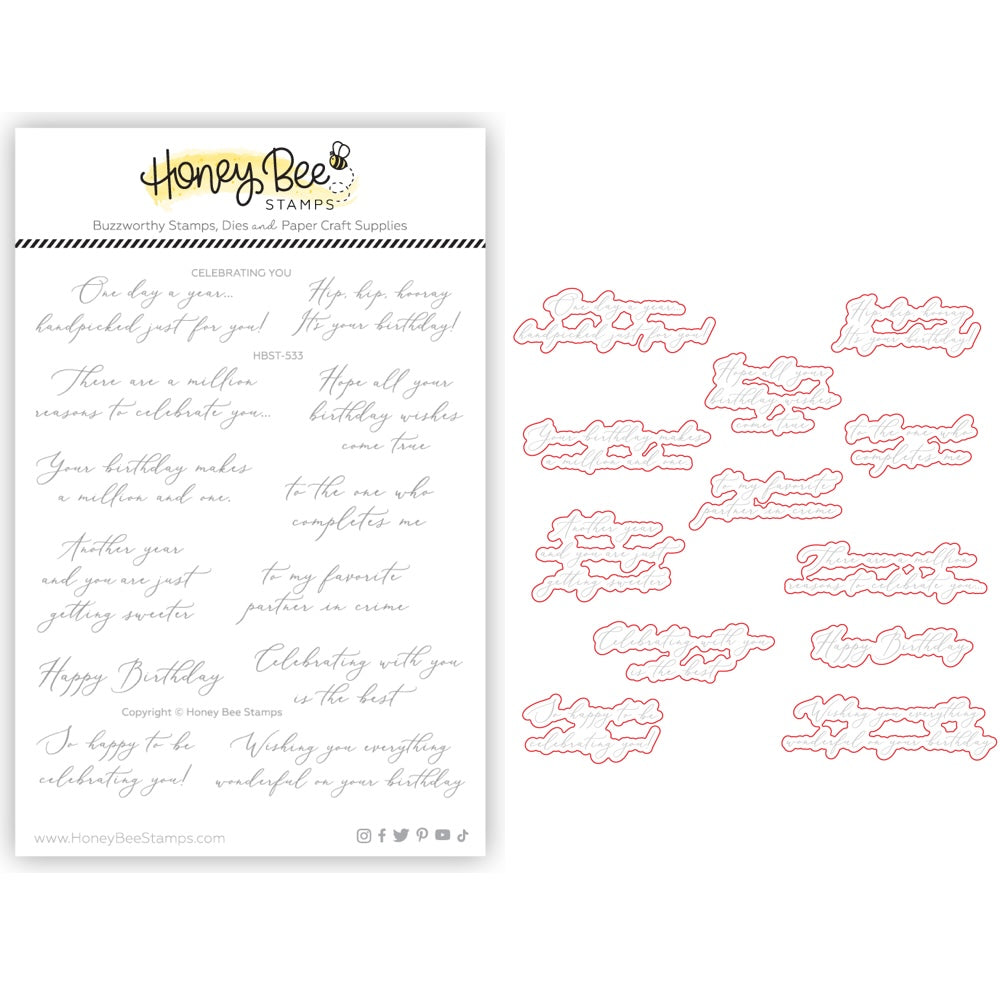 Honey Bee
STAMPS
Buzzworthy Stamps, Dies and Paper Craft Supplies
CELEBRATING YOU
One day a year...
handpicked just for you!
Hip, hip, hooray
It's your birthday!
HBST-533
There are a million
reasons to celebrate you...
Hope all your
birthday wishes
come true
Your birthday makes
a million and one.
to the one who
completes me
Another year
and you are just
getting sweeter
to my favorite
partner in crime
Happy Birthday
Celebrating with you
is the best
Copyright © Honey Bee Stamps
So happy to be
celebrating you!
Wishing you everything
wonderful on your birthday
www.HoneyBeeStamps.com
One day a year
handpicked just for you!
Hip, hip, hooray
It's your birthday!
Hope all your
birthday wishes
come true
Your birthday makes
a million and one
to the one who
completes me
to my favorite
partner in crime
Another year
and you are just
getting sweeter
There are a million
reasons to celebrate you...
Celebrating with you
is the best
Happy Birthday
So happy to be
celebrating you!
Wishing you everything
wonderful on your birthday